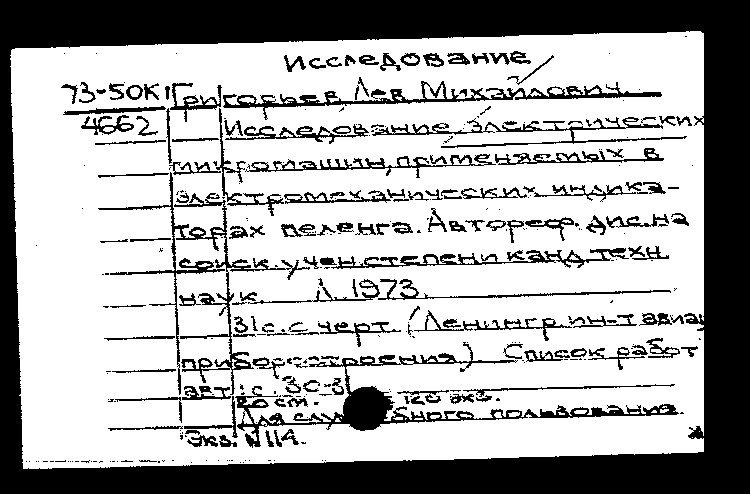 Исследование
73-50К Григорьев Лев Михайлович.
4662 Исследование электрических
микромашин, применяемых в
электромеханических индика-
торах пеленга. Автореф. дис. на
соиск. учен. степени канд. техн.
наук. Л. 1973.
31с. с черт. (Ленингр. ин-т авиац
приборостроения). Список работ
авт.: с. 30-31
20 см. 120 экз.
Для служебного пользования
Экз. №114.